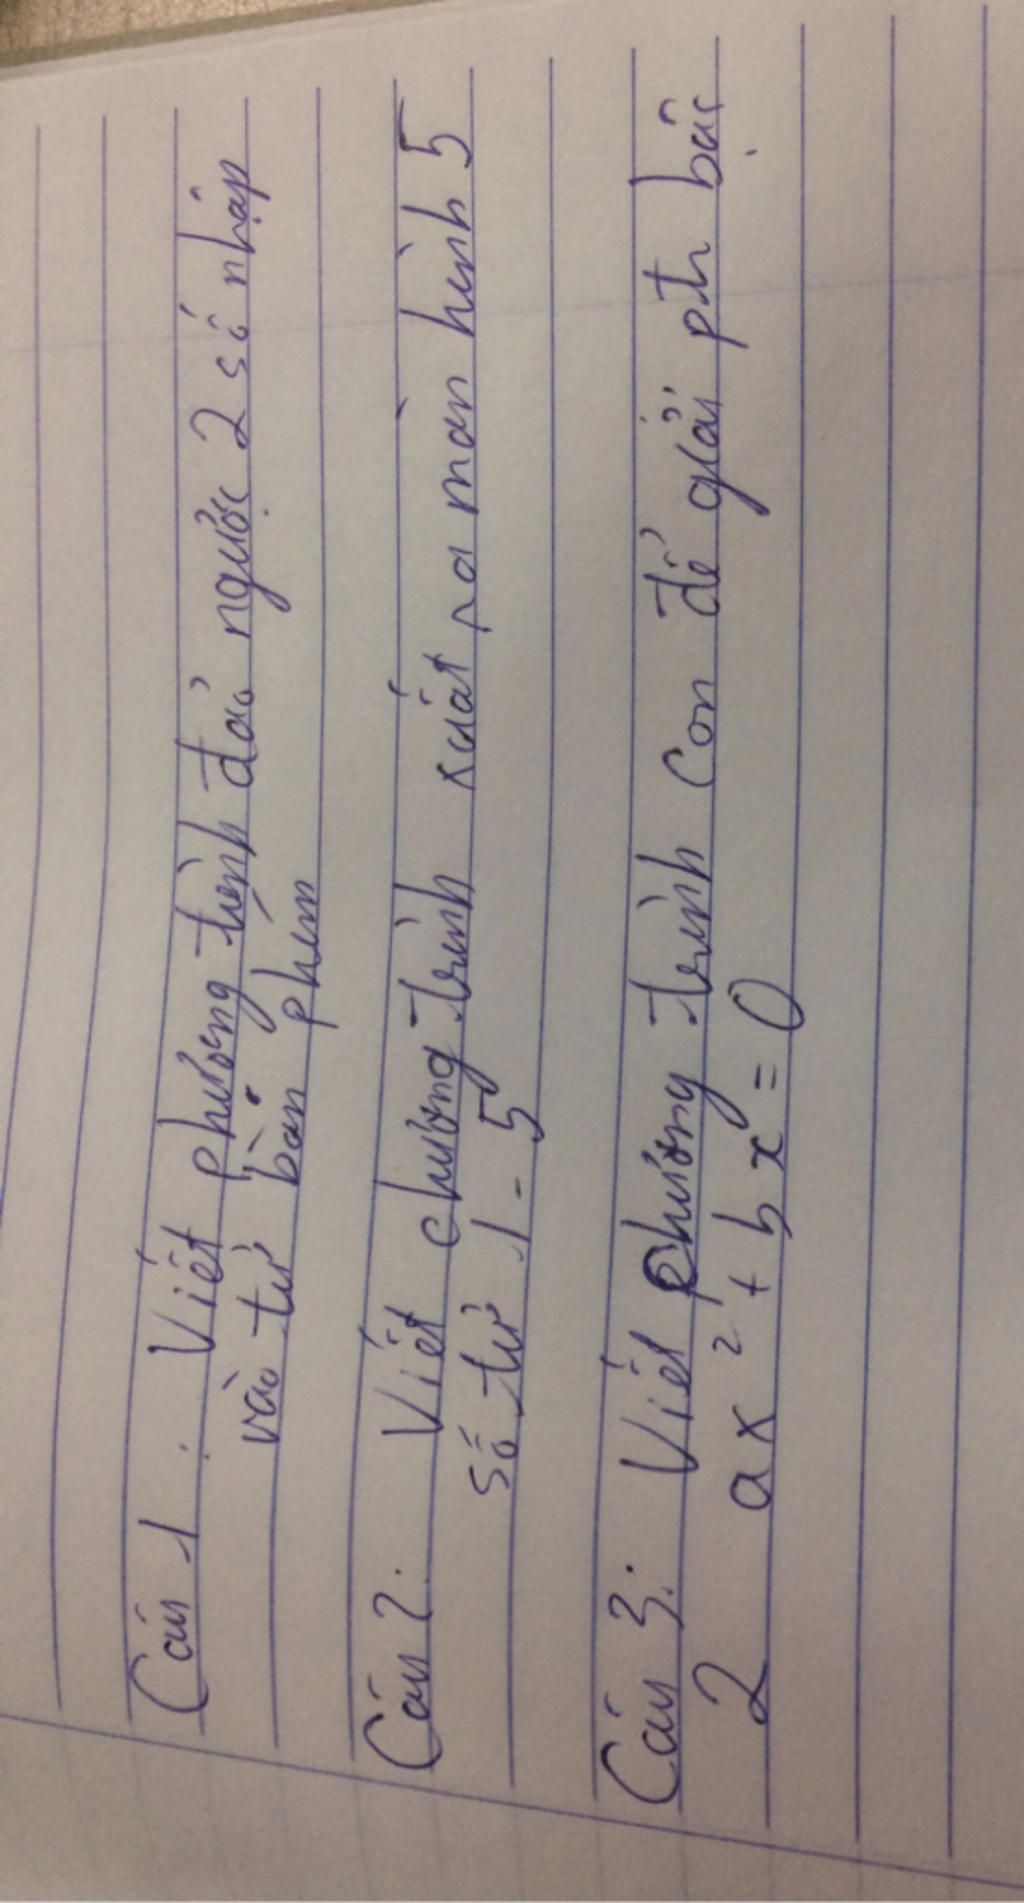 Câu 1: Viết phương trình đảo ngược 2 số nhập
vào từ bàn phím
Câu 2: Viết chương trình xuất ra màn hình 5
số từ 1 - 5
Câu 3: Viết phương trình con để giải pth bậc
2 ax² + bx = 0